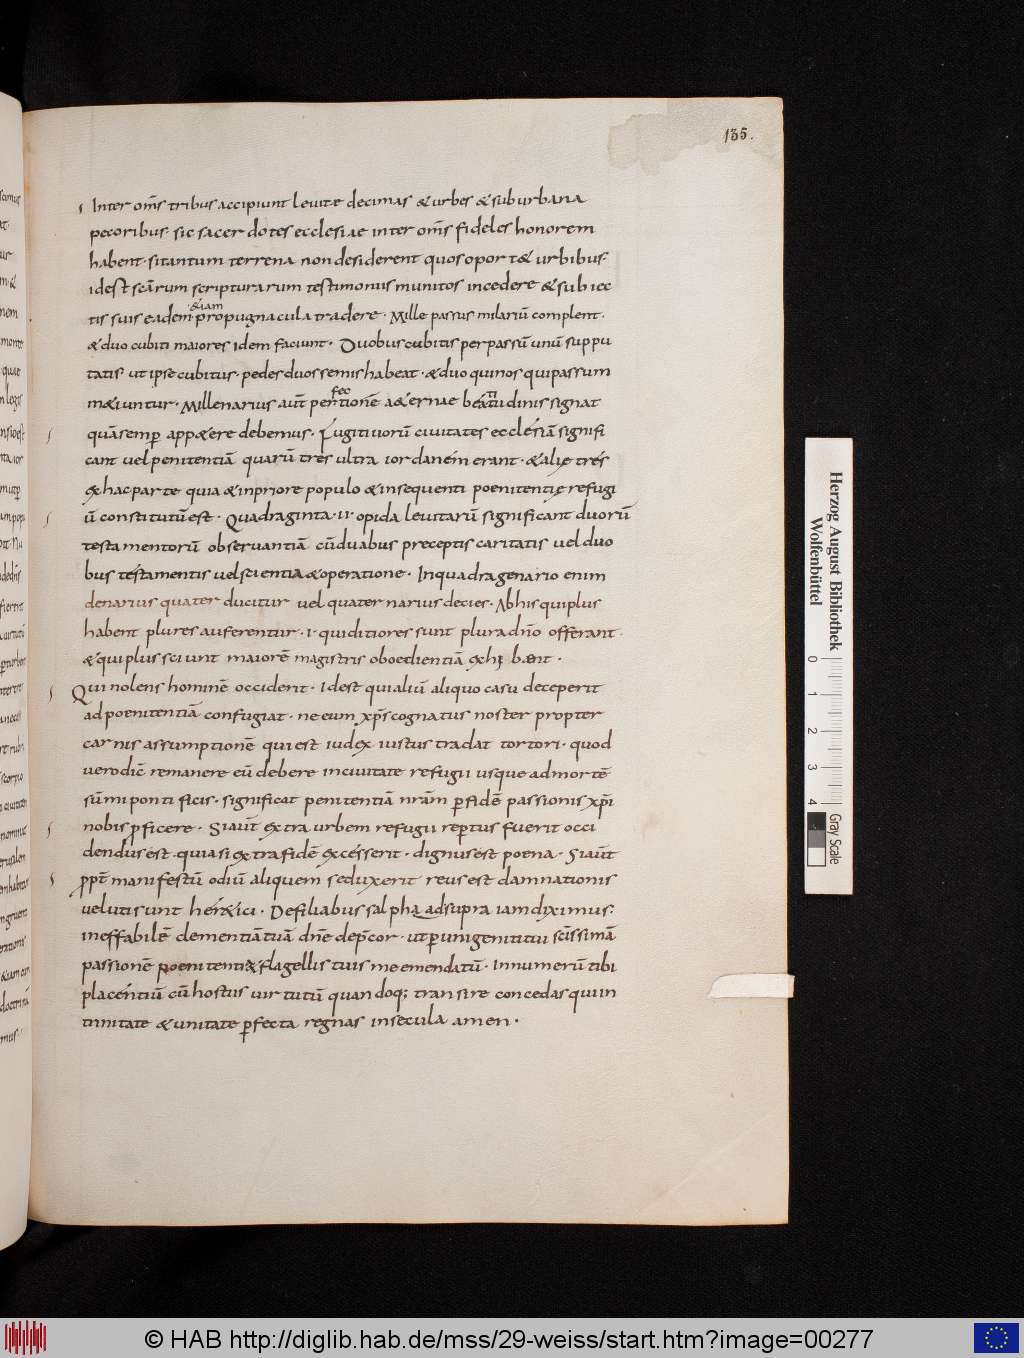 135.
Inter om̄s tribus accipiunt leuitę decimas &urbes &suburbana
pecoribus· sic sacerdotes ecclesiae inter om̄s fideles honorem
habent· sitantum terrena nondesiderent quosoport& urbibus·
idest scārum scripturarum testimoniis munitos incedere &subiec
tis suis eadem ·&iam· propugnacula tradere· Mille passus miliariū complent·
&duo cubiti maiores idem faciunt· Duobuscubitis perpassū unū suppu
tatis· ut ipse cubitus· pedes duossemis habeat· &duo quinos quipassum
m&iuntur· Millenarius aut̄ perfectionē a&ernae beatitudinis signat
quāsemp app&ere debemus· Fugitiuorū ciuitates ecclesiā signifi
cant uel penitentiā quarū tres ultra iordanem erant· &alię tres
ex hac parte quia &inpriore populo &insequenti poenitentię refugi
ū constitutū est· Quadraginta·ii· opida leuitarū significant duorū
testamentorū obseruantiā cūduabus preceptis caritatis uel duo
bus testamentis uelscientia &operatione· Inquadragenario enim
denarius quater ducitur uel quaternarius decies· Abhis quiplus
habent plures auferentur· i· quiditiores sunt plura dn̄o offerant·
&quiplus sciunt maiorē magistris oboedientiā exhibent·
Qui nolens hominē occiderit· Idest quialiū aliquo casu deceperit
ad poenitentiā confugiat· ne eum xp̄s cognatus noster propter
carnis assumptionē qui est iudex iustus tradat tortori· quod
uerodic̄ remanere eū debere inciuitate refugii usque ad mortē
sūmi pontificis· significat penitentiā nr̄am p fidē passionis xp̄i
nobis pficere· Siaut̄ extra urbem refugii reptus fuerit occi
dendus est· quia si extra fidē excesserit· dignus est poena· Siaut̄
ppt̄ manifestū odiū aliquem seduxerit reus est damnationis
uelutisunt her&ici· Defiliabus salphaad supra iam diximus·
ineffabilē clementiā tuā dn̄e dep̄cor· ut p unigeniti tui sc̄issimā
passionē poenitentię &flagellis tuis me emendatū· Innumerū tibi
placentiū cū hostus uirtutū quandoq; transire concedas qui in
trinitate &unitate pfecta regnas insecula amen·
Herzog August Bibliothek
Wolfenbüttel
0 1 2 3 4
Gray Scale
© HAB http://diglib.hab.de/mss/29-weiss/start.htm?image=00277